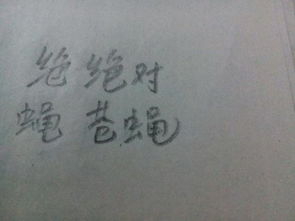 绝 绝对
蝇 苍蝇